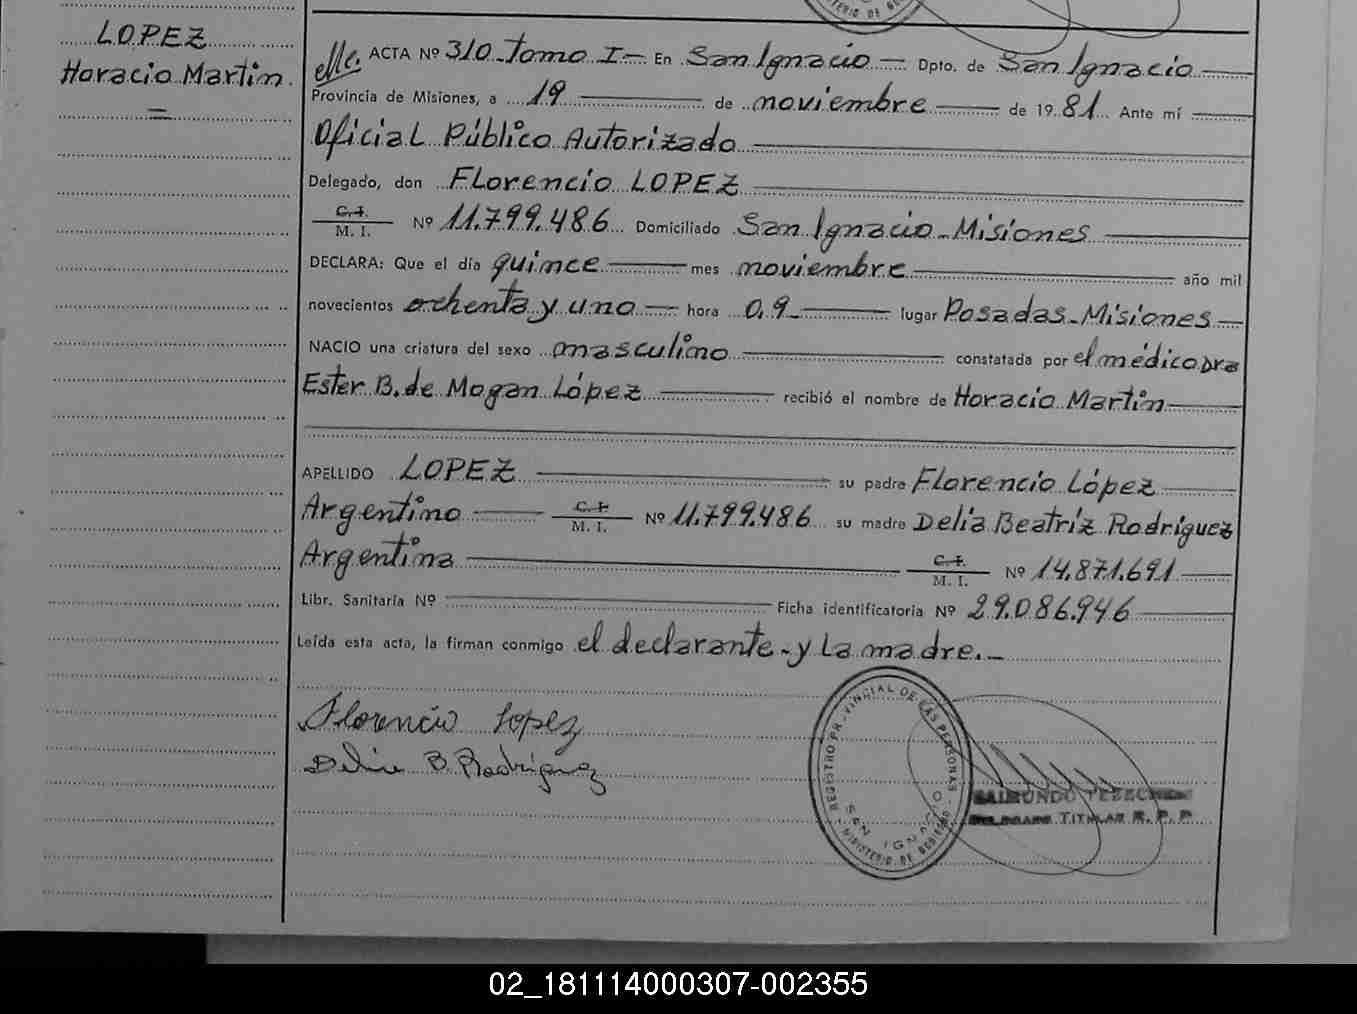 LOPEZ
Horacio Martín.
=
ACTA Nº 310 Tomo I - En San Ignacio - Dpto. de San Ignacio
Provincia de Misiones, a 19 de noviembre de 1981 Ante mí
Oficial Público Autorizado
Delegado, don Florencio LOPEZ
C. I.
M. I. Nº 11.799.486 Domiciliado San Ignacio - Misiones
DECLARA: Que el día quince mes noviembre año mil
novecientos ochenta y uno hora 0,9 lugar Posadas - Misiones
NACIO una criatura del sexo masculino constatada por el médico Dra
Ester B. de Mogan López recibió el nombre de Horacio Martín
APELLIDO LOPEZ su padre Florencio López
Argentino C. I. M. I. Nº 11.799.486 su madre Delia Beatriz Rodríguez
Argentina C. I. M. I. Nº 14.871.691
Libr. Sanitaria Nº Ficha identificatoria Nº 29.086.946
Leída esta acta, la firman conmigo el declarante - y la madre. -
Florencio Lopez
Delia B. Rodriguez
REGISTRO PROVINCIAL DE LAS PERSONAS
SAN IGNACIO
MINISTERIO DE GOBIERNO
RAIMUNDO
DELEGADO TITULAR R. P. P.
02_181114000307-002355